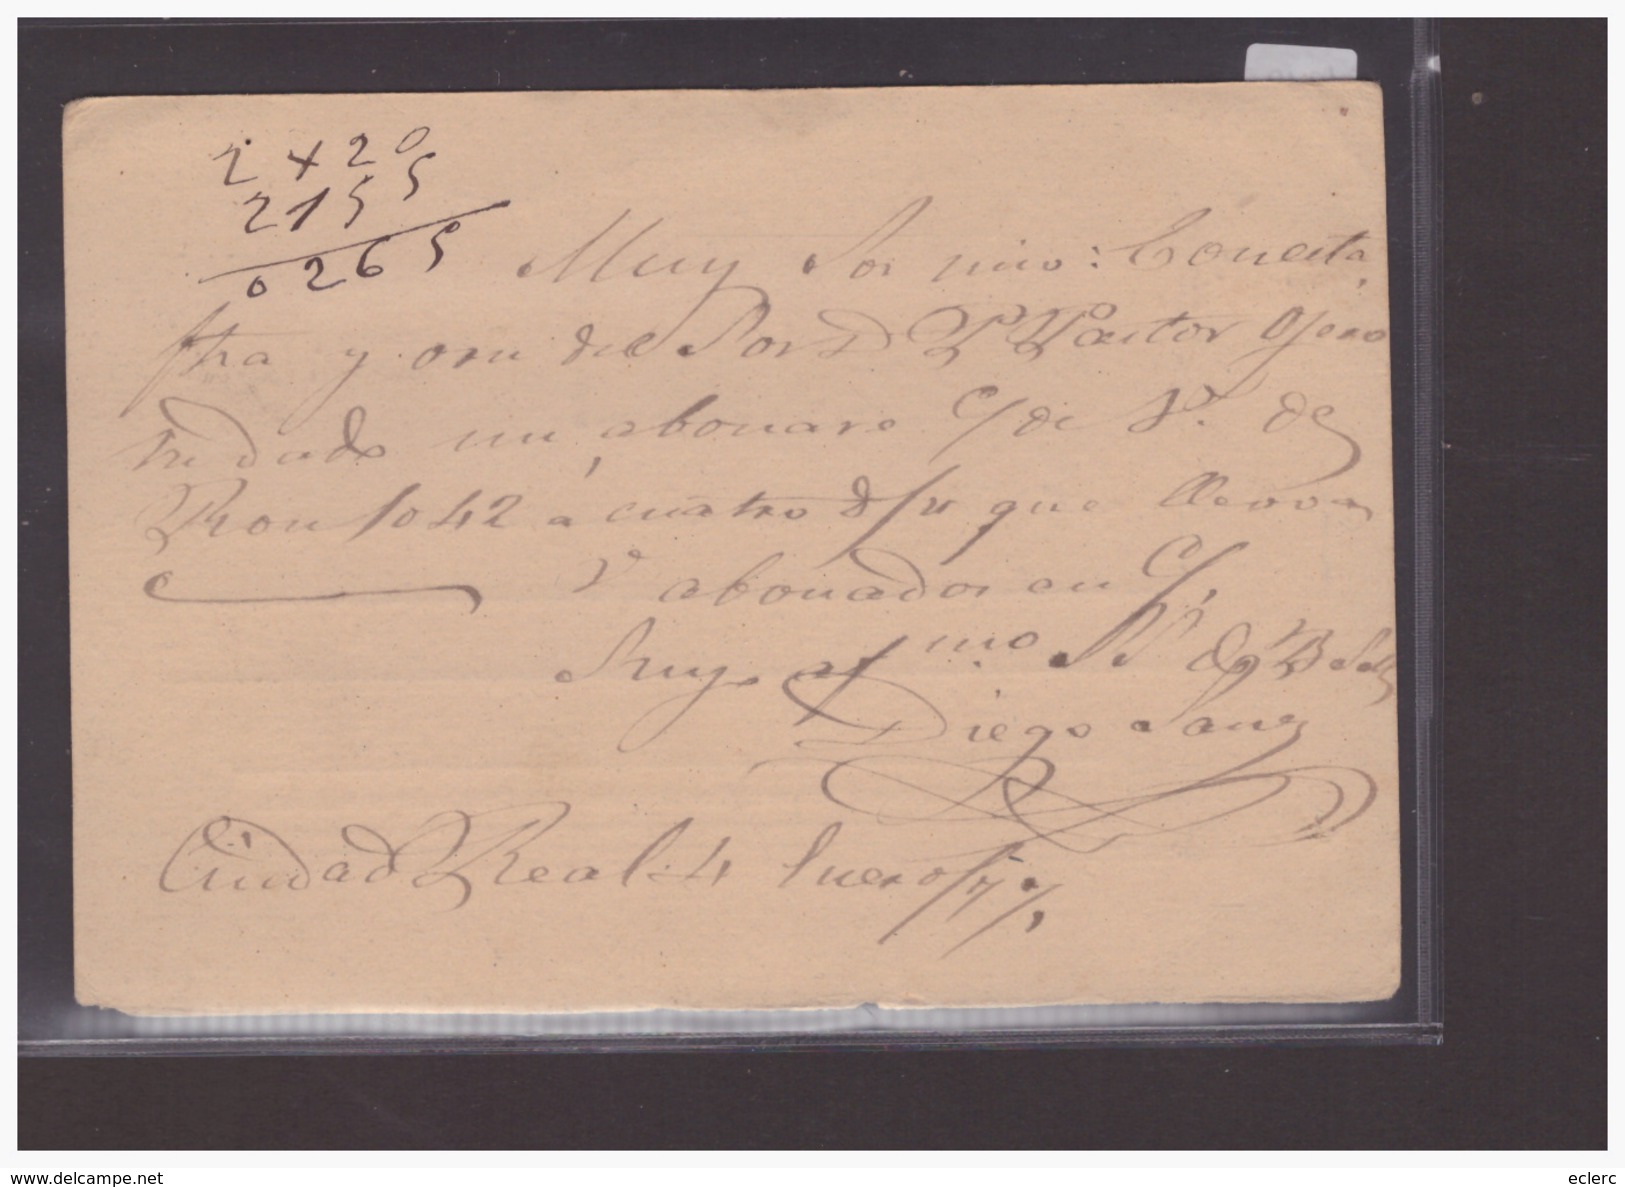 2420
2155
0265
Muy Sor mio: Con esta
fha y orn del Sor D. P. Pastor Ojero
he dado un abonare c/ de V. de
Ron 1042 a cuatro d/v que
abonados en c/
Suyo af mo S S Q B S M
Diego Sanz
Ciudad Real 4 Enero/77,
www.delcampe.net
eclerc